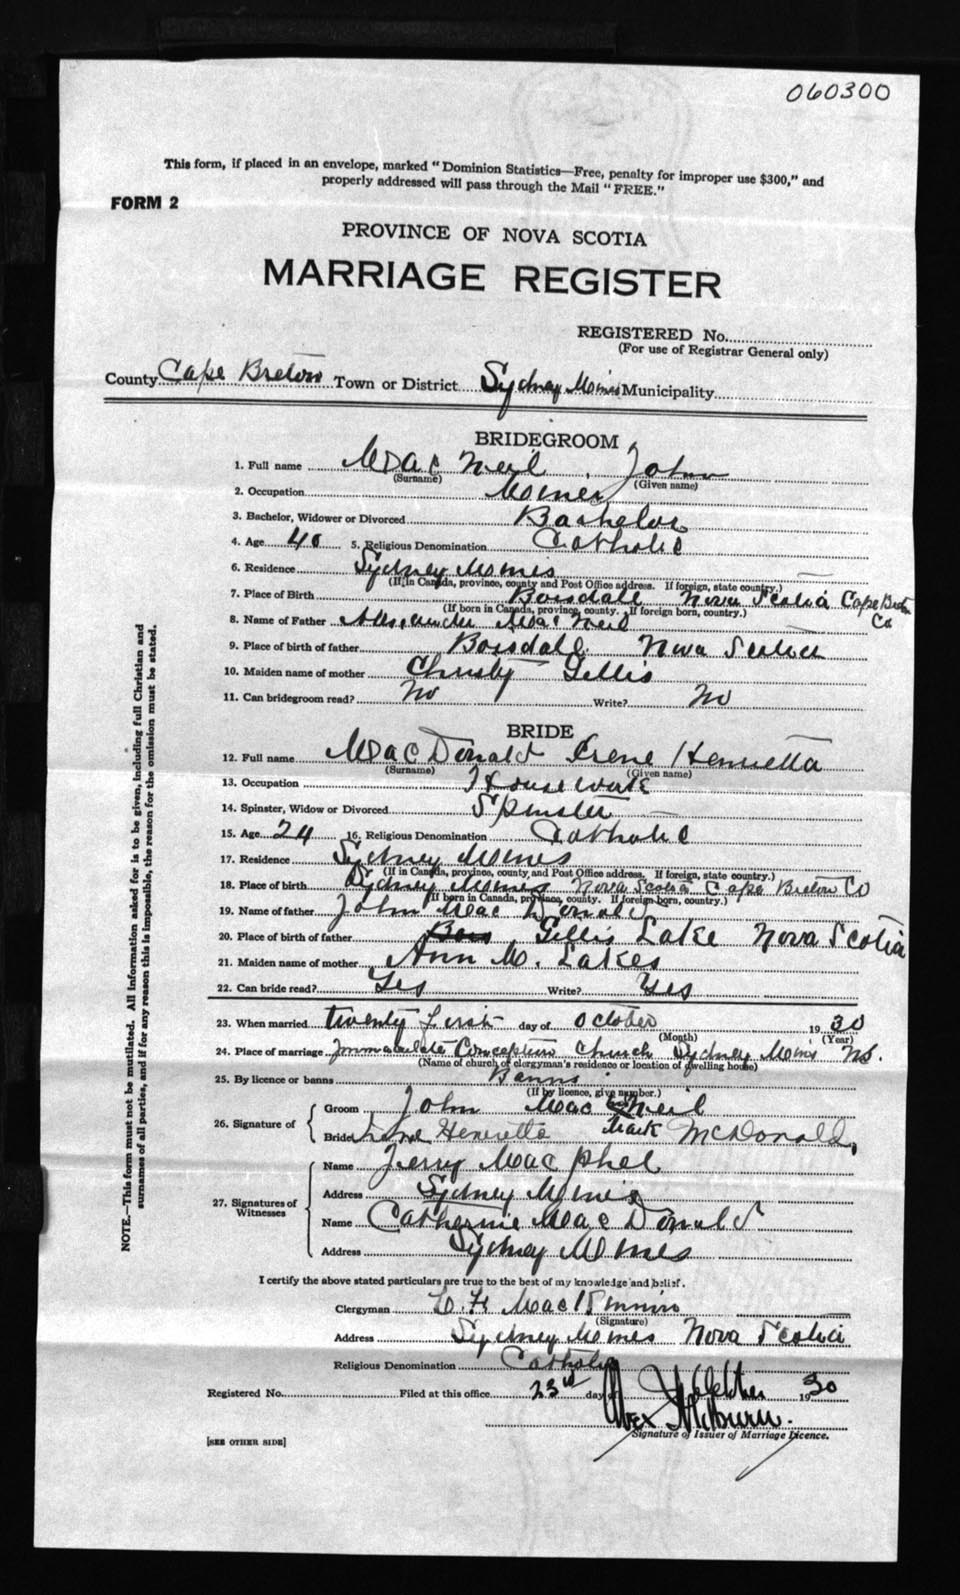 060300
This form, if placed in an envelope, marked "Dominion Statistics—Free, penalty for improper use $300," and
properly addressed will pass through the Mail "FREE."
FORM 2
PROVINCE OF NOVA SCOTIA
MARRIAGE REGISTER
REGISTERED No.
(For use of Registrar General only)
County Cape Breton Town or District Sydney Mines Municipality
BRIDEGROOM
1. Full name MacNeil, John
(Surname) (Given name)
2. Occupation Miner
3. Bachelor, Widower or Divorced Bachelor
4. Age 40 5. Religious Denomination Catholic
6. Residence Sydney Mines
(If in Canada, province, county and Post Office address. If foreign, state country.)
7. Place of Birth Boisdale Nova Scotia Cape Breton Co
(If born in Canada, province, county. If foreign born, country.)
8. Name of Father Alexander MacNeil
9. Place of birth of father Boisdale Nova Scotia
10. Maiden name of mother Christy Gillis
11. Can bridegroom read? No Write? No
BRIDE
12. Full name MacDonald Irene Henrietta
(Surname) (Given name)
13. Occupation Housework
14. Spinster, Widow or Divorced Spinster
15. Age 24 16. Religious Denomination Catholic
17. Residence Sydney Mines
(If in Canada, province, county and Post Office address. If foreign, state country.)
18. Place of birth Sydney Mines Nova Scotia Cape Breton Co
(If born in Canada, province, county. If foreign born, country.)
19. Name of father John MacDonald
20. Place of birth of father Bois Gillis Lake Nova Scotia
21. Maiden name of mother Ann M. Lakes
22. Can bride read? Yes Write? Yes
23. When married twenty first day of October 1930
(Month) (Year)
24. Place of marriage Immaculate Conception Church Sydney Mines NS.
(Name of church or clergyman's residence or location of dwelling house)
25. By licence or banns Banns
(If by licence, give number.)
26. Signature of
Groom John MacNeil
his
mark
Bride Irene Henrietta McDonald,
27. Signatures of Witnesses
Name Jerry MacPhee
Address Sydney Mines
Name Catherine MacDonald
Address Sydney Mines
I certify the above stated particulars are true to the best of my knowledge and belief.
Clergyman MacKinnon
(Signature)
Address Sydney Mines Nova Scotia
Religious Denomination Catholic
Registered No. Filed at this office 23rd day of October 1930
Alex
Signature of Issuer of Marriage Licence.
[SEE OTHER SIDE]
NOTE.—This form must not be mutilated. All information asked for is to be given, including full Christian and
surnames of all parties, and if for any reason this is impossible, the reason for the omission must be stated.